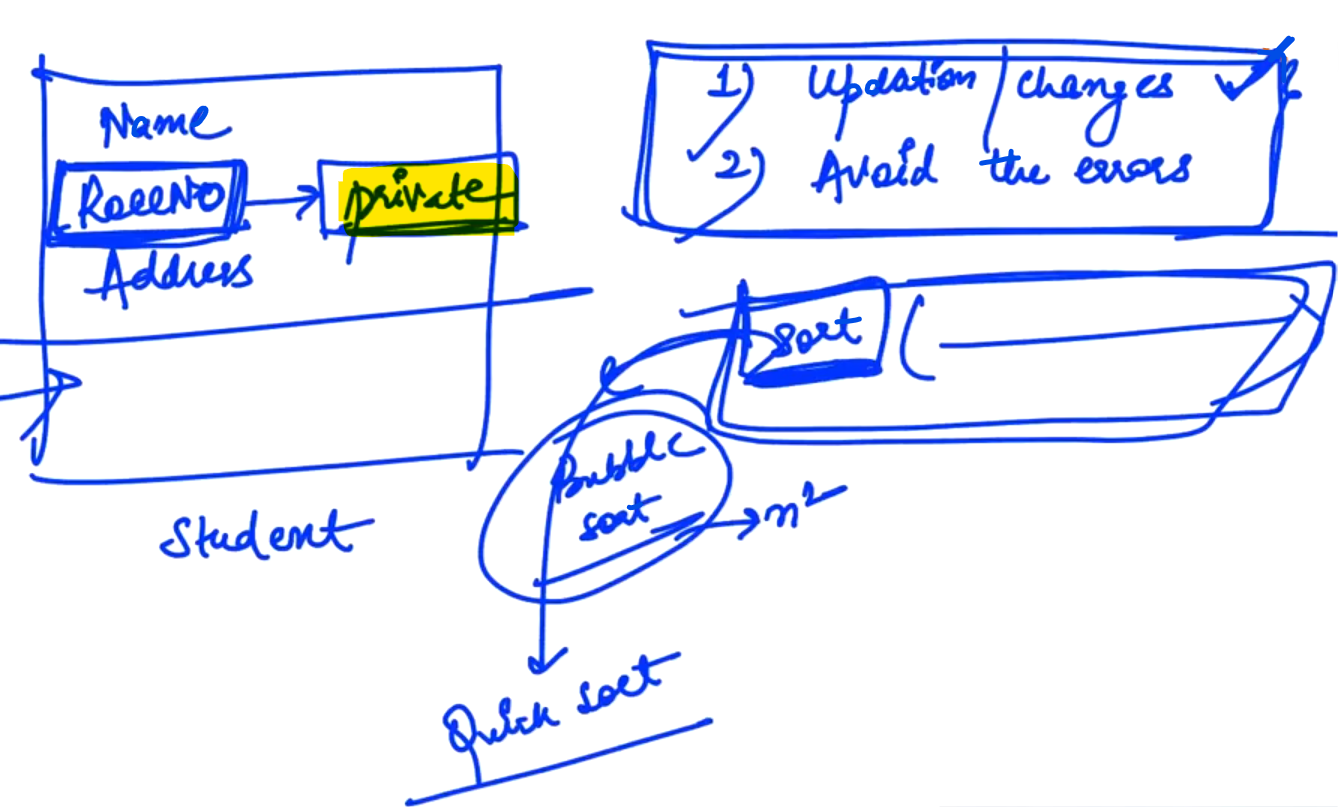 Name
RollNO → private
Address
Student
1) Updation / changes ✓
2) Avoid the errors
sort (
Bubble
sort → n²
Quick sort